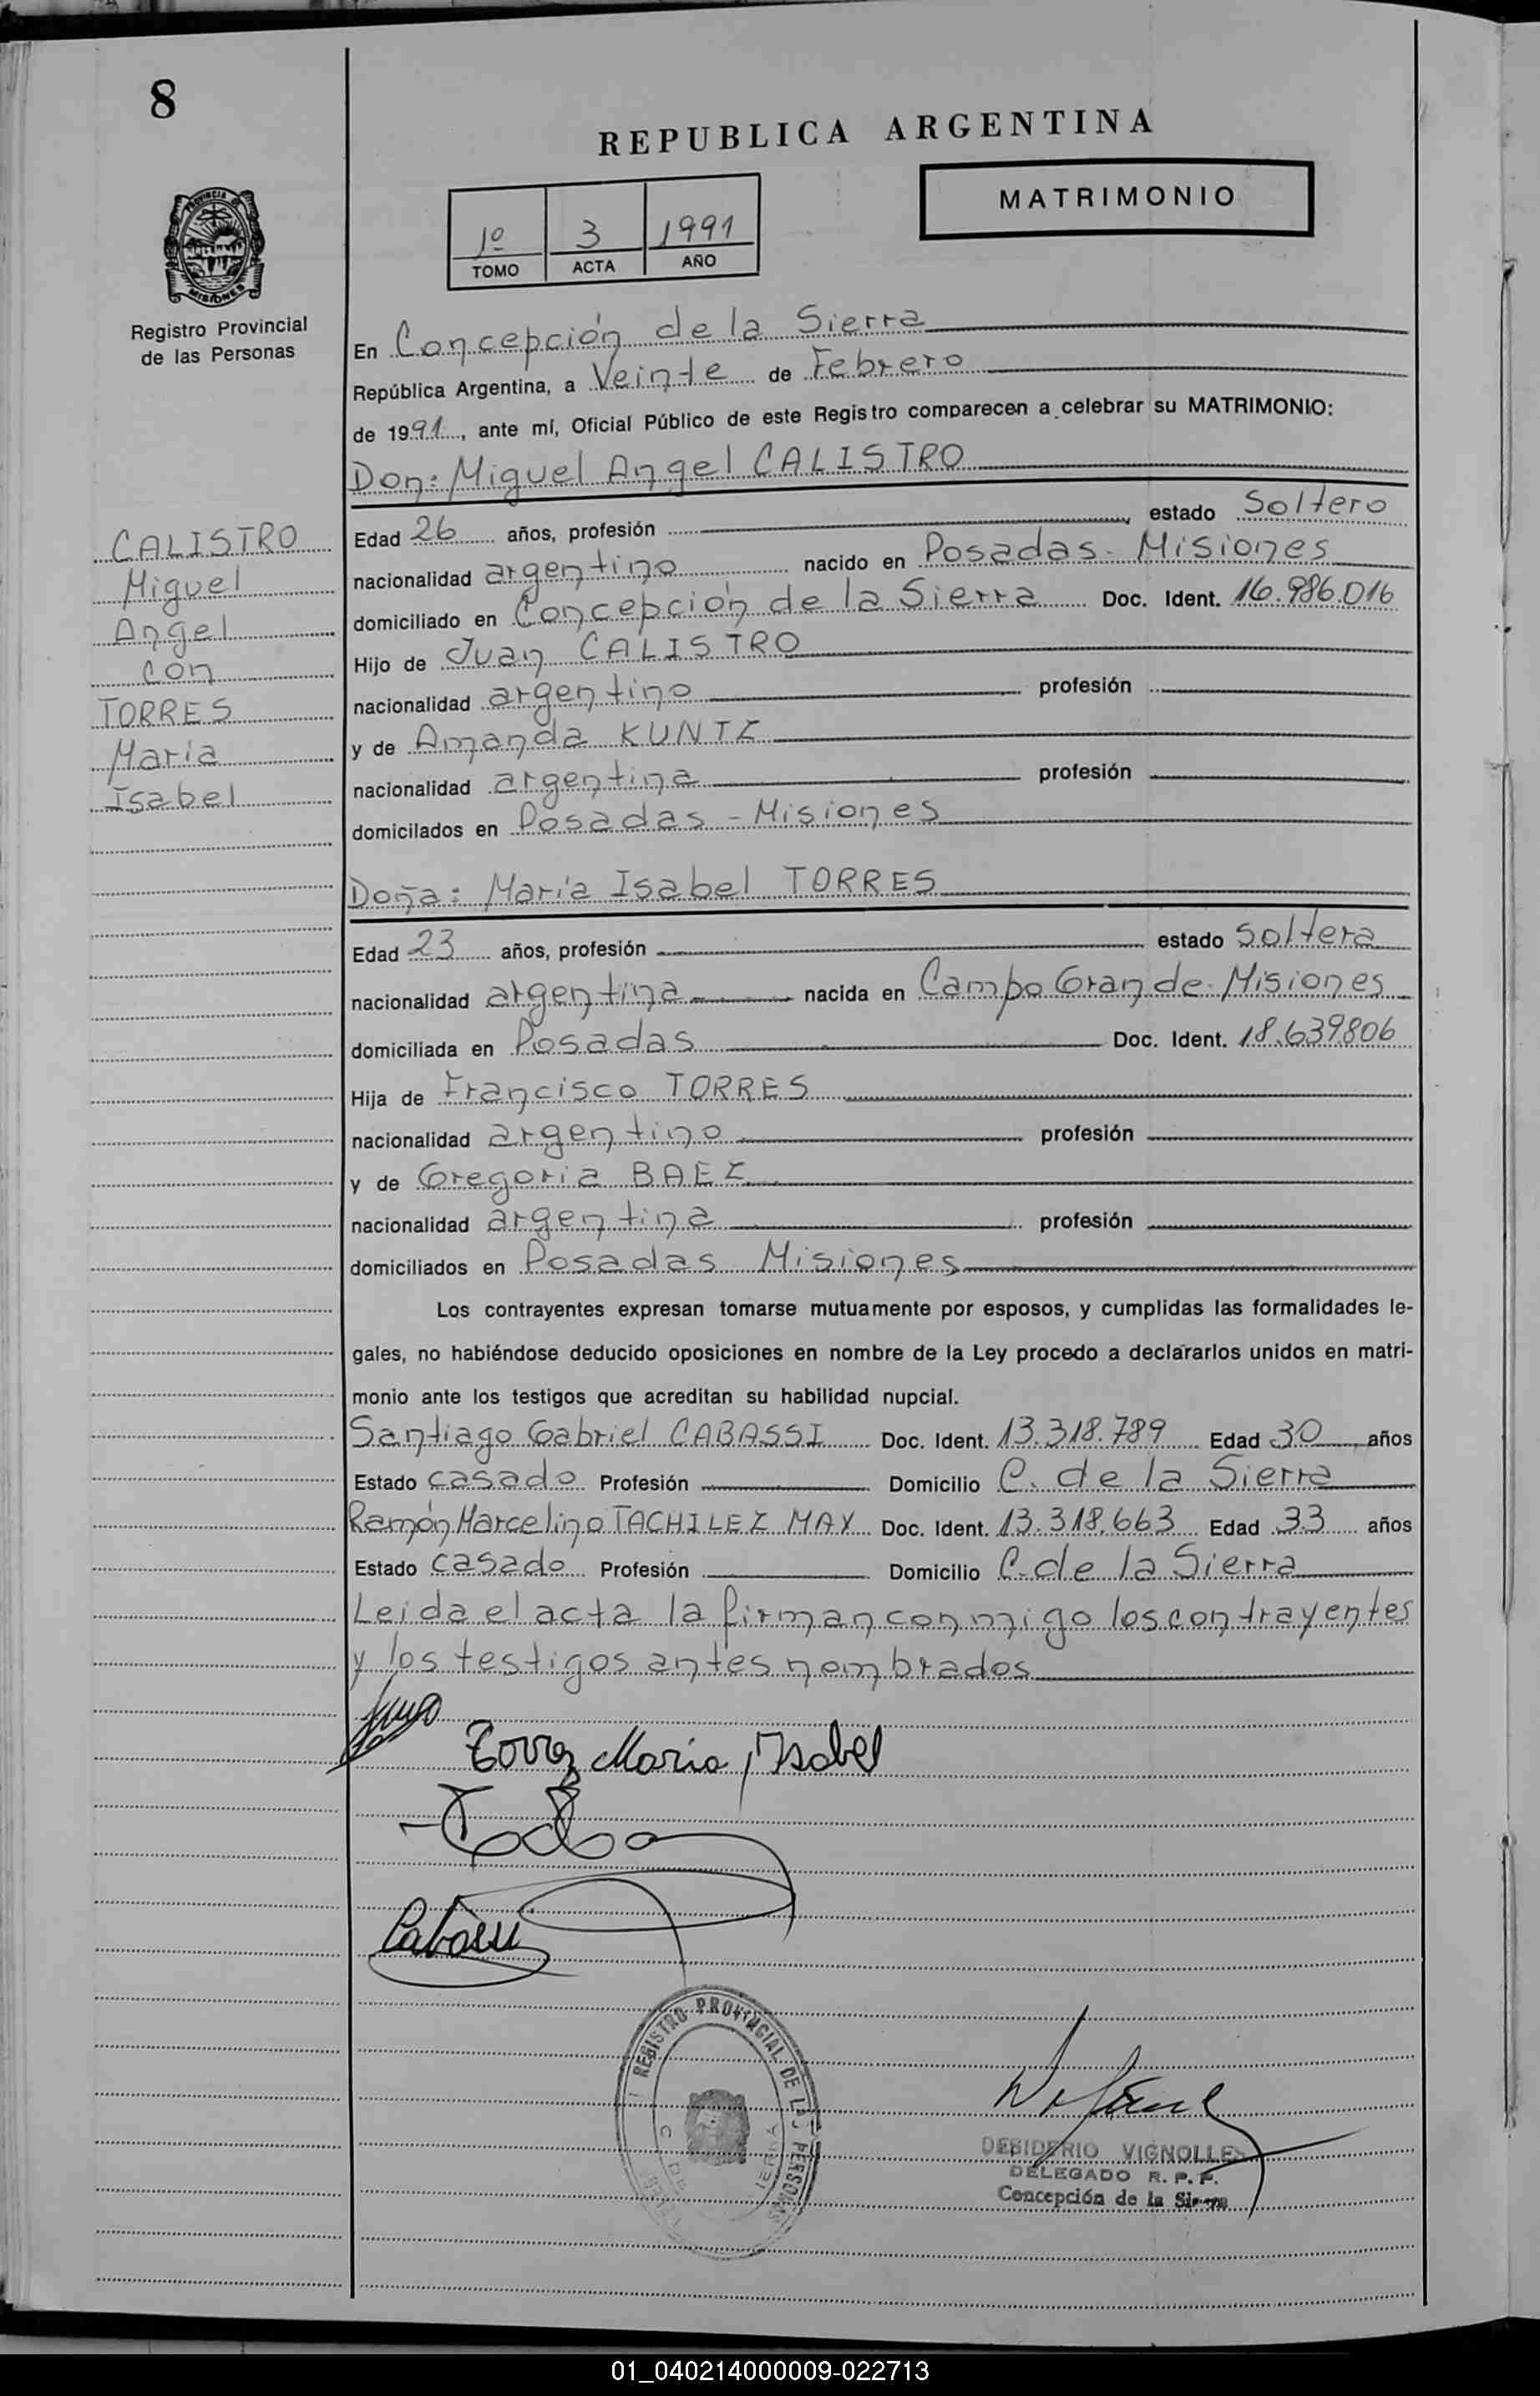 8
REPUBLICA ARGENTINA
MATRIMONIO
1º 3 1991
TOMO ACTA AÑO
PROVINCIA DE
MISIONES
Registro Provincial
de las Personas
En Concepción de la Sierra
República Argentina, a Veinte de Febrero
de 1991, ante mí, Oficial Público de este Registro comparecen a celebrar su MATRIMONIO:
Don: Miguel Angel CALISTRO
CALISTRO
Miguel
Angel
con
TORRES
María
Isabel
Edad 26 años, profesión estado Soltero
nacionalidad argentino nacido en Posadas - Misiones
domiciliado en Concepción de la Sierra Doc. Ident. 16.986.016
Hijo de Juan CALISTRO
nacionalidad argentino profesión
y de Amanda KUNTZ
nacionalidad argentina profesión
domicilados en Posadas - Misiones
Doña: María Isabel TORRES
Edad 23 años, profesión estado Soltera
nacionalidad argentina nacida en Campo Grande - Misiones
domiciliada en Posadas Doc. Ident. 18.639806
Hija de Francisco TORRES
nacionalidad argentino profesión
y de Gregoria BAEZ
nacionalidad argentina profesión
domiciliados en Posadas Misiones
Los contrayentes expresan tomarse mutuamente por esposos, y cumplidas las formalidades le-
gales, no habiéndose deducido oposiciones en nombre de la Ley procedo a declararlos unidos en matri-
monio ante los testigos que acreditan su habilidad nupcial.
Santiago Gabriel CABASSI Doc. Ident. 13.318.789 Edad 30 años
Estado casado Profesión Domicilio C. de la Sierra
Ramón Marcelino TACHILEZ MAX Doc. Ident. 13.318.663 Edad 33 años
Estado casado Profesión Domicilio C. de la Sierra
Leida el acta la firman conmigo los contrayentes
y los testigos antes nombrados
Torrez María Isabel
Cabassi
REGISTRO PROVINCIAL DE LAS PERSONAS
DESIDERIO VIGNOLLES
DELEGADO R. P. P.
Concepción de la Sierra
01_040214000009-022713